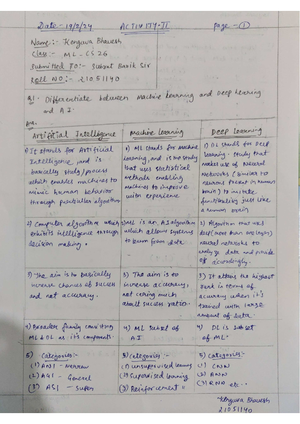 Date:- 19/8/24 ACTIVITY-II page - (1)
Name:- Kenguva Bhavesh
Class:- ML. CS26
Submitted To:- Subhat Barik Sir
ROLL NO:- 21051140
Q1- Differentiate between Machine Learning and Deep Learning
and A.I.
Ans.
Artificial Intelligence
1) It stands for Artificial
Intelligence, and is
basically study/process
which enables machines to
mimic human behavior
through particular algorithm.
2) Computer algorithm which
exhibits intelligence through
decision making.
3) The aim is to basically
increase chances of success
and not accuracy.
4) Broader family consisting
ML & DL as its components.
5) Categories:-
(1) ANI - Narrow
(2) AGI - General
(3) ASI - Super
Machine Learning
1) ML stands for Machine
Learning, and is the study
that uses statistical
methods enabling
machines to improve
with experience
2) ML is an AI algorithm
which allows systems
to learn from data
3) The aim is to
increase accuracy,
not caring much
about success ratio.
4) ML subset of
AI
5) Categories:-
(1) unsupervised learning
(2) Supervised learning
(3) Reinforcement "
Deep Learning
1) DL stands for Deep
Learning, study that
makes use of Neural
networks (similar to
neurons present in human
brain) to imitate
functionality just like
a human brain.
2) Algorithm that use
deep (more than one layer)
neural networks to
analyze data and provide
o/p accordingly.
3) It attains the highest
rank in terms of
accuracy when it's
trained with large
amount of data.
4) DL is subset
of ML
5) Categories:-
(1) CNN
(2) ANN
(3) RNN etc..
Kenguva Bhavesh
21051140